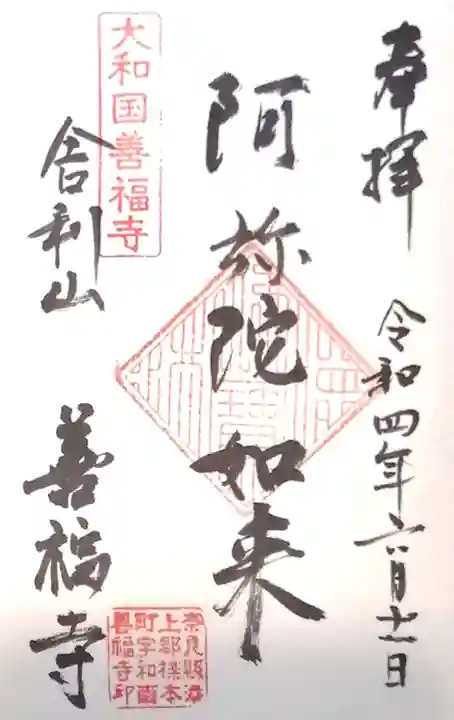 奉拝
令和四年六月十一日
阿弥陀如来
大和国善福寺
舎利山
善福寺
奈良県添
上郡櫟本
町字和爾
善福寺印